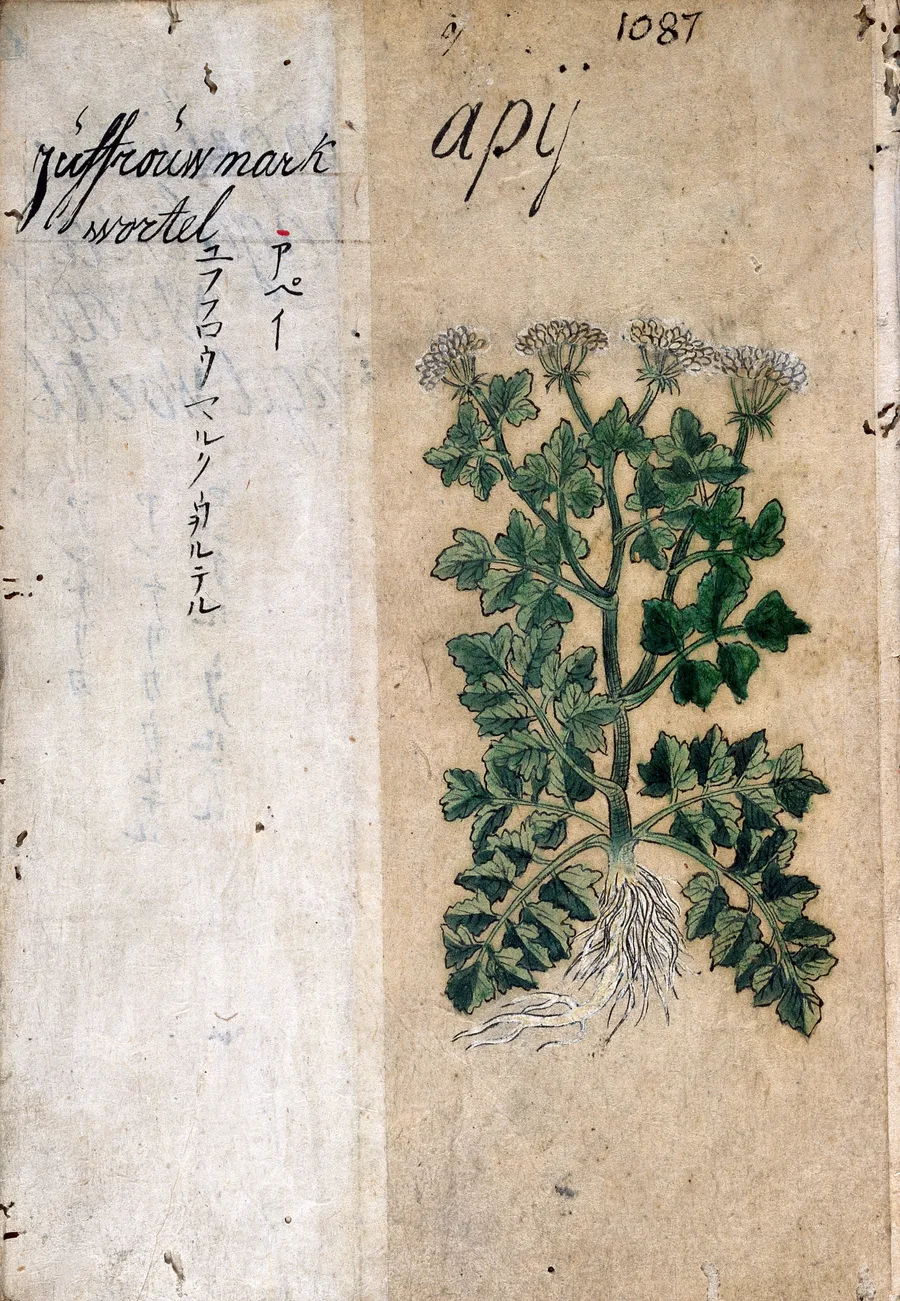 1087
apÿ
júffroúw mark
wortel
アペイ
ユフフロウ マルク ウヲルテル